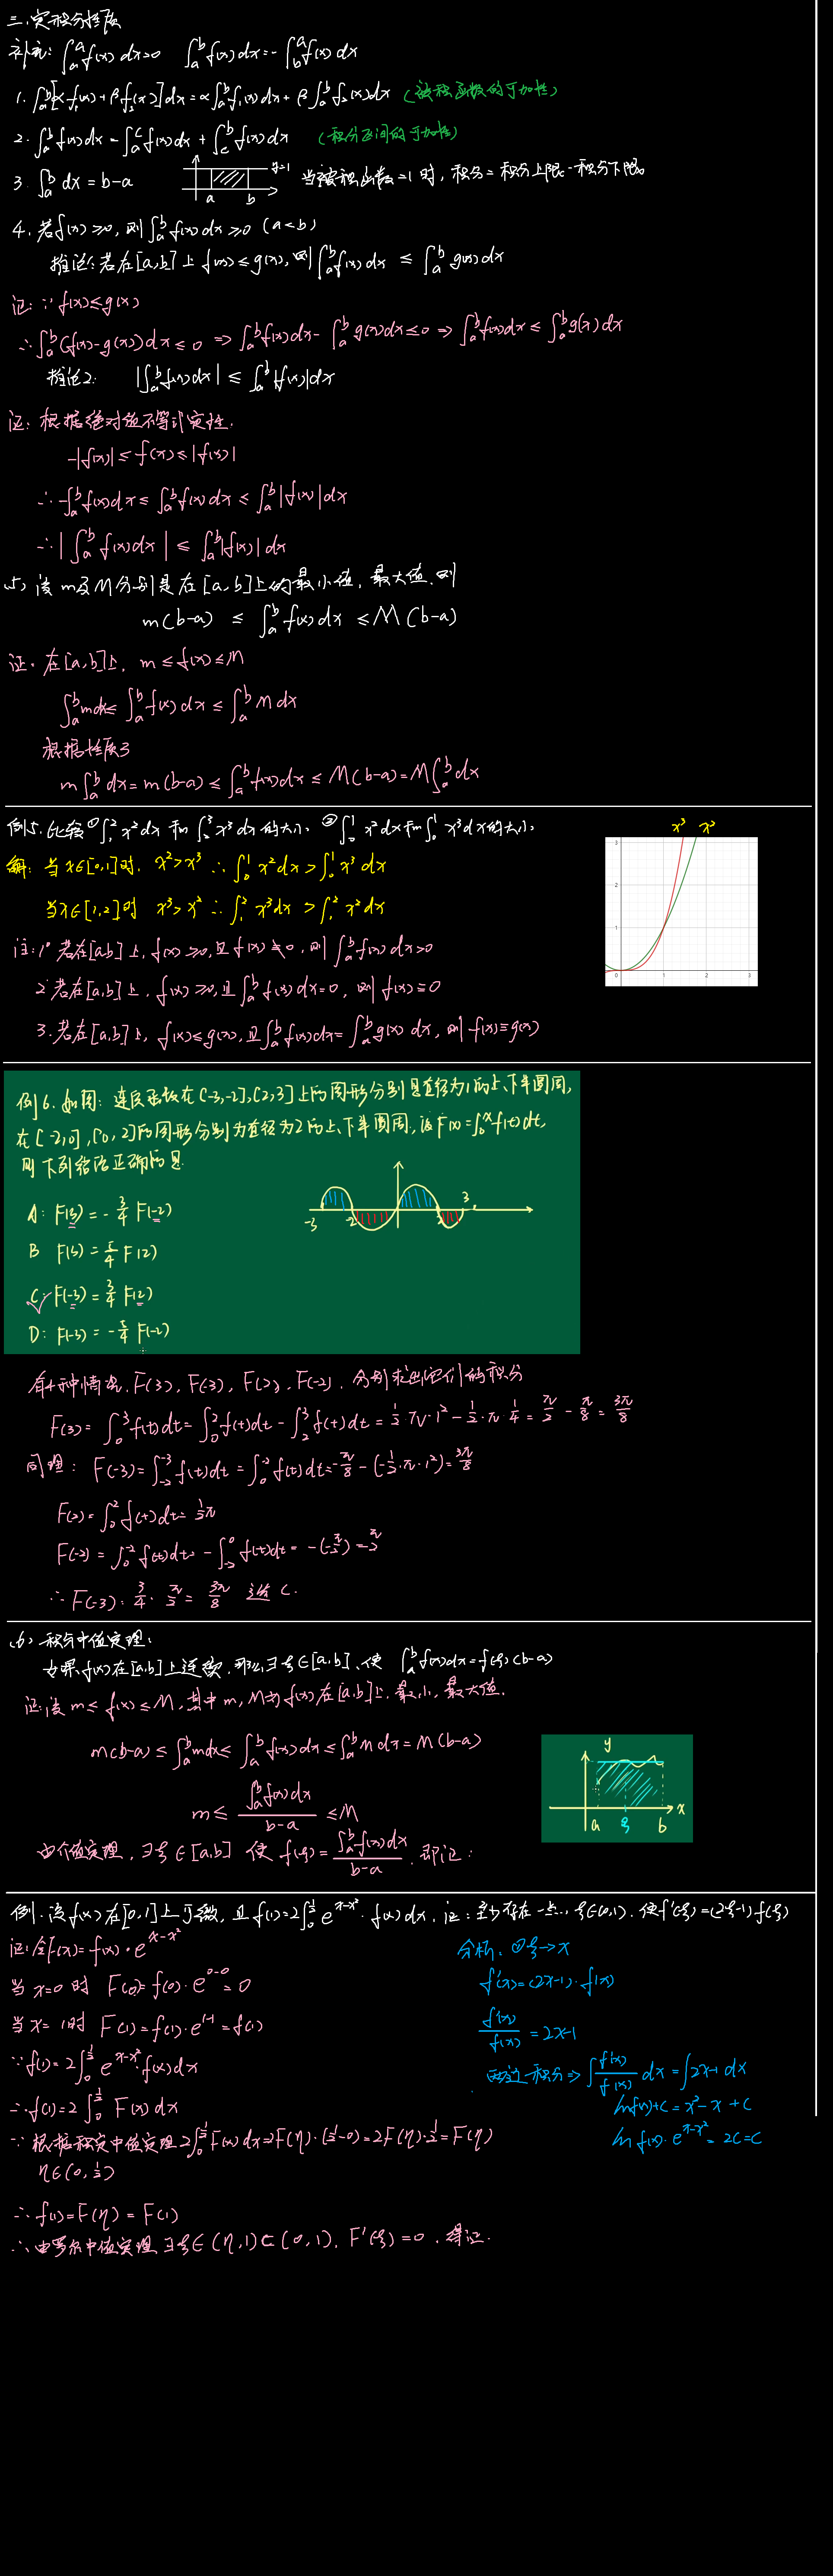 三、定积分性质
补充: ∫_a^a f(x)dx=0 ∫_a^b f(x)dx=-∫_b^a f(x)dx
1. ∫_a^b[αf₁(x)+βf₂(x)]dx=α∫_a^b f₁(x)dx+β∫_a^b f₂(x)dx (被积函数的可加性)
2. ∫_a^b f(x)dx=∫_a^c f(x)dx+∫_c^b f(x)dx (积分区间的可加性)
3. ∫_a^b dx=b-a a b y=1 当被积函数=1时, 积分=积分上限-积分下限。
4. 若f(x)≥0, 则∫_a^b f(x)dx≥0 (a<b)
推论: 若在[a,b]上 f(x)≤g(x), 则∫_a^b f(x)dx ≤ ∫_a^b g(x)dx
证: ∵ f(x)≤g(x)
∴∫_a^b(f(x)-g(x))dx≤0 ⇒ ∫_a^b f(x)dx-∫_a^b g(x)dx≤0 ⇒ ∫_a^b f(x)dx≤∫_a^b g(x)dx
推论2: |∫_a^b f(x)dx| ≤ ∫_a^b|f(x)|dx
证: 根据绝对值不等式定性.
-|f(x)|≤f(x)≤|f(x)|
∴-∫_a^b f(x)dx≤∫_a^b f(x)dx≤∫_a^b|f(x)|dx
∴|∫_a^b f(x)dx|≤∫_a^b|f(x)|dx
(5) 设m及M分别是在[a,b]上的最小值, 最大值, 则
m(b-a) ≤ ∫_a^b f(x)dx ≤M(b-a)
证. 在[a,b]上, m≤f(x)≤M
∫_a^b mdx≤∫_a^b f(x)dx≤∫_a^b Mdx
根据性质3
m∫_a^b dx=m(b-a)≤∫_a^b f(x)dx≤M(b-a)=M∫_a^b dx
例5. 比较①∫_1^2 x²dx 和 ∫_1^2 x³dx的大小 ②∫_0^1 x²dx和∫_0^1 x³dx的大小.
x³ x²
解: 当x∈[0,1]时, x²>x³ ∴∫_0^1 x²dx>∫_0^1 x³dx
当x∈[1,2]时 x³>x² ∴∫_1^2 x³dx>∫_1^2 x²dx
注: 1° 若在[a,b]上, f(x)≥0, 且f(x)≢0, 则∫_a^b f(x)dx>0
2. 若在[a,b]上, f(x)≥0, 且∫_a^b f(x)dx=0, 则f(x)≡0
3. 若在[a,b]上, f(x)≤g(x), 且∫_a^b f(x)dx=∫_a^b g(x)dx, 则f(x)≡g(x)
例6. 如图: 连续函数在[-3,-2],[2,3]上的图形分别是直径为1的上、下半圆周,
在[-2,0],[0,2]的图形分别为直径为2的上、下半圆周, 设F(x)=∫_0^x f(t)dt,
则下列结论正确的是
A: F(3)=-3/4 F(-2)
B F(3)=5/4 F(2)
C: F(-3)=3/4 F(2)
D: F(-3)=-5/4 F(-2)
-3 -2 2 3
有4种情况, F(3), F(-3), F(2), F(-2), 分别求出它们的积分
F(3)=∫_0^3 f(t)dt=∫_0^2 f(t)dt-∫_2^3 f(t)dt=1/2·π·1²-1/2·π·1/4=π/2-π/8=3π/8
同理: F(-3)=∫_-2^-3 f(t)dt=∫_0^-2 f(t)dt=-π/8-(-1/2·π·1²)=3π/8
F(2)=∫_0^2 f(t)dt=1/2π
F(-2)=∫_0^-2 f(t)dt=-∫_-2^0 f(t)dt=-(-π/2)=π/2
∴F(-3)=3/4·π/2=3π/8 选 C.
(6) 积分中值定理:
如果f(x)在[a,b]上连续, 那么∃ξ∈[a,b], 使 ∫_a^b f(x)dx=f(ξ)(b-a)
证: 设m≤f(x)≤M, 其中m,M为f(x)在[a,b]上, 最小, 最大值.
m(b-a)≤∫_a^b mdx≤∫_a^b f(x)dx≤∫_a^b Mdx=M(b-a)
m≤ ∫_a^b f(x)dx/(b-a) ≤M
y a ξ b x
由介值定理, ∃ξ∈[a,b] 使 f(ξ)=∫_a^b f(x)dx/(b-a), 即证:
例. 设f(x)在[0,1]上可微, 且f(1)=2∫_0^{1/2} e^{x-x²}·f(x)dx, 证: 至少存在一点, ξ∈(0,1), 使f'(ξ)=(2ξ-1)f(ξ)
证: 令F(x)=f(x)·e^{x-x²}
当x=0时 F(0)=f(0)·e^{0-0}=0
当x=1时 F(1)=f(1)·e^{1-1}=f(1)
∵f(1)=2∫_0^{1/2} e^{x-x²}·f(x)dx
∴f(1)=2∫_0^{1/2} F(x)dx
∵根据积定中值定理2∫_0^{1/2}F(x)dx=2F(η)·(1/2-0)=2F(η)·1/2=F(η)
η∈(0,1/2)
∴f(1)=F(η)=F(1)
∴由罗尔中值定理 ∃ξ∈(η,1)⊂(0,1), F'(ξ)=0, 得证.
分析: ①ξ→x
f'(x)=(2x-1)·f(x)
f'(x)/f(x)=2x-1
两边积分⇒∫f'(x)/f(x) dx=∫2x-1 dx
lnf(x)+C=x²-x+C
ln f(x)·e^{x-x²}=2C=C